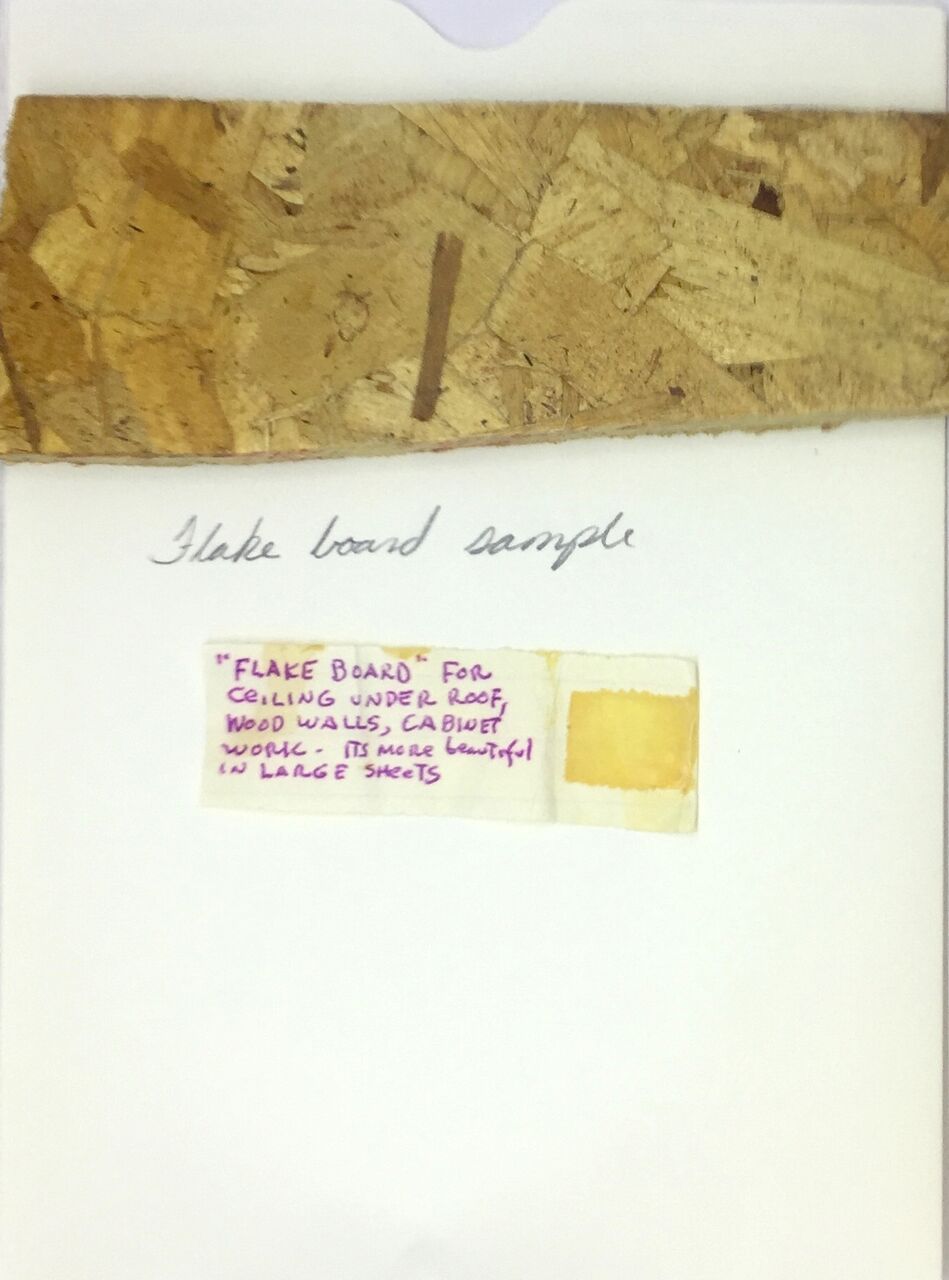 Flake board sample
"FLAKE BOARD" FOR
CEILING UNDER ROOF,
WOOD WALLS, CABINET
WORK - ITS MORE beautiful
IN LARGE SHeeTS